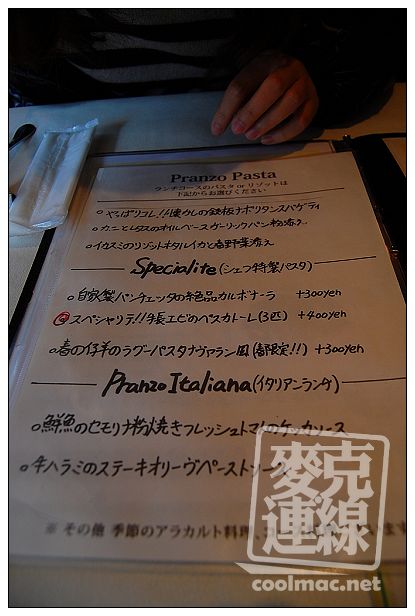 Pranzo Pasta
ランチコースのパスタ or リゾットは
下記からお選びください
○やっぱりコレ!!懐かしの鉄板ナポリタンスパゲティ
○カニとレタスのオイルベースガーリックパン粉添え
○イカスミのリゾットホタルイカと春野菜添え
Specialite(シェフ特製パスタ)
○自家製パンチェッタの絶品カルボナーラ +300yen
スペシャリテ!!手長エビのペスカトーレ(3匹) +400yen
○春の仔羊のラグーパスタナヴァラン風(春限定!!) +300yen
Pranzo Italiana(イタリアンランチ)
○鮮魚のセモリナ粉焼きフレッシュトマトのケッカソース
○牛ハラミのステーキオリーヴペーストソース
※ その他 季節のアラカルト料理、
麥克連線
coolmac.net